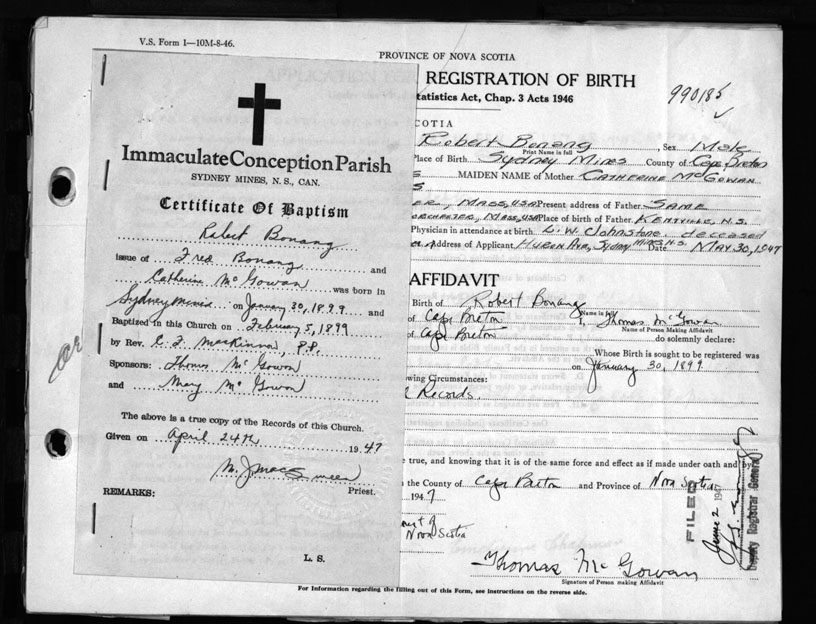 V.S. Form 1—10M-8-46.
PROVINCE OF NOVA SCOTIA
REGISTRATION OF BIRTH
tatistics Act, Chap. 3 Acts 1946
990185
COTIA
Robert Bonang, Sex Male
Print Name in full
Place of Birth Sydney Mines County of Cape Breton
S MAIDEN NAME of Mother CATHERINE McGOWAN
S
ER, MASS, USA Present address of Father SAME
ORCHESTER, MASS, USA Place of birth of Father KENTVILLE, N.S.
Physician in attendance at birth L. W. Johnstone. deceased
Address of Applicant HURON AVE, SYDNEY MINES N.S. Date MAY 30, 1947
AFFIDAVIT
Birth of Robert Bonang
Name in full
of Cape Breton I, Thomas McGowan
Name of Person Making Affidavit
of Cape Breton do solemnly declare:
Whose Birth is sought to be registered was
on January 30, 1899
owing Circumstances:
Records.
e true, and knowing that it is of the same force and effect as if made under oath and by
the County of Cape Breton and Province of Nova Scotia
1947
Nova Scotia
FILED
June 2 1947
Deputy Registrar General
Thomas McGowan
Signature of Person making Affidavit
For Information regarding the filling out of this Form, see instructions on the reverse side.
Immaculate Conception Parish
SYDNEY MINES, N. S., CAN.
Certificate Of Baptism
Robert Bonang
issue of Fred Bonang and
Catherine McGowan was born in
Sydney Mines on January 30, 1899 and
Baptized in this Church on February 5, 1899
by Rev. C. F. MacKinnon, P.P.
Sponsors: Thomas McGowan
and Mary McGowan
The above is a true copy of the Records of this Church.
Given on April 24th 1947
Priest.
REMARKS:
L. S.
or